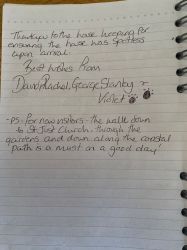 Thankyou to the house keeping for
ensuring the house was spotless
upon arrival.
Best wishes from
David, Rachel, George, Stanley &
Violet
- PS - For new visitors - the walk down
to St Just Church - through the
gardens and down along the coastal
path is a must on a good day!